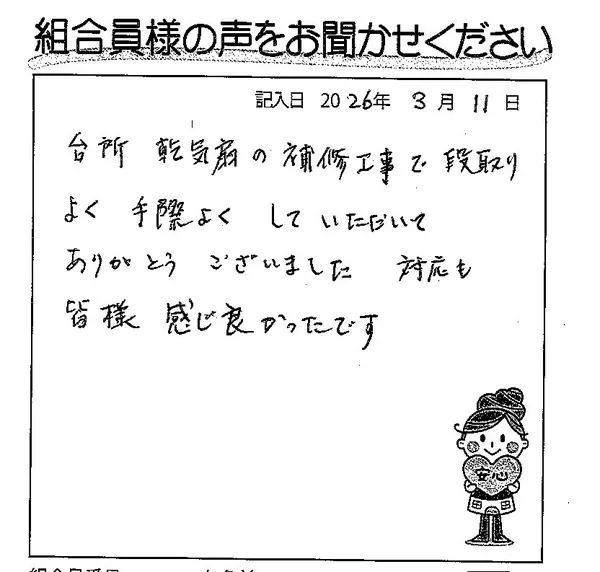 組合員様の声をお聞かせください
記入日 2026年 3月 11日
台所 乾気扇の補修工事で段取り
よく 手際よく していただいて
ありがとう ございました 対応も
皆様 感じ良かったです
安心